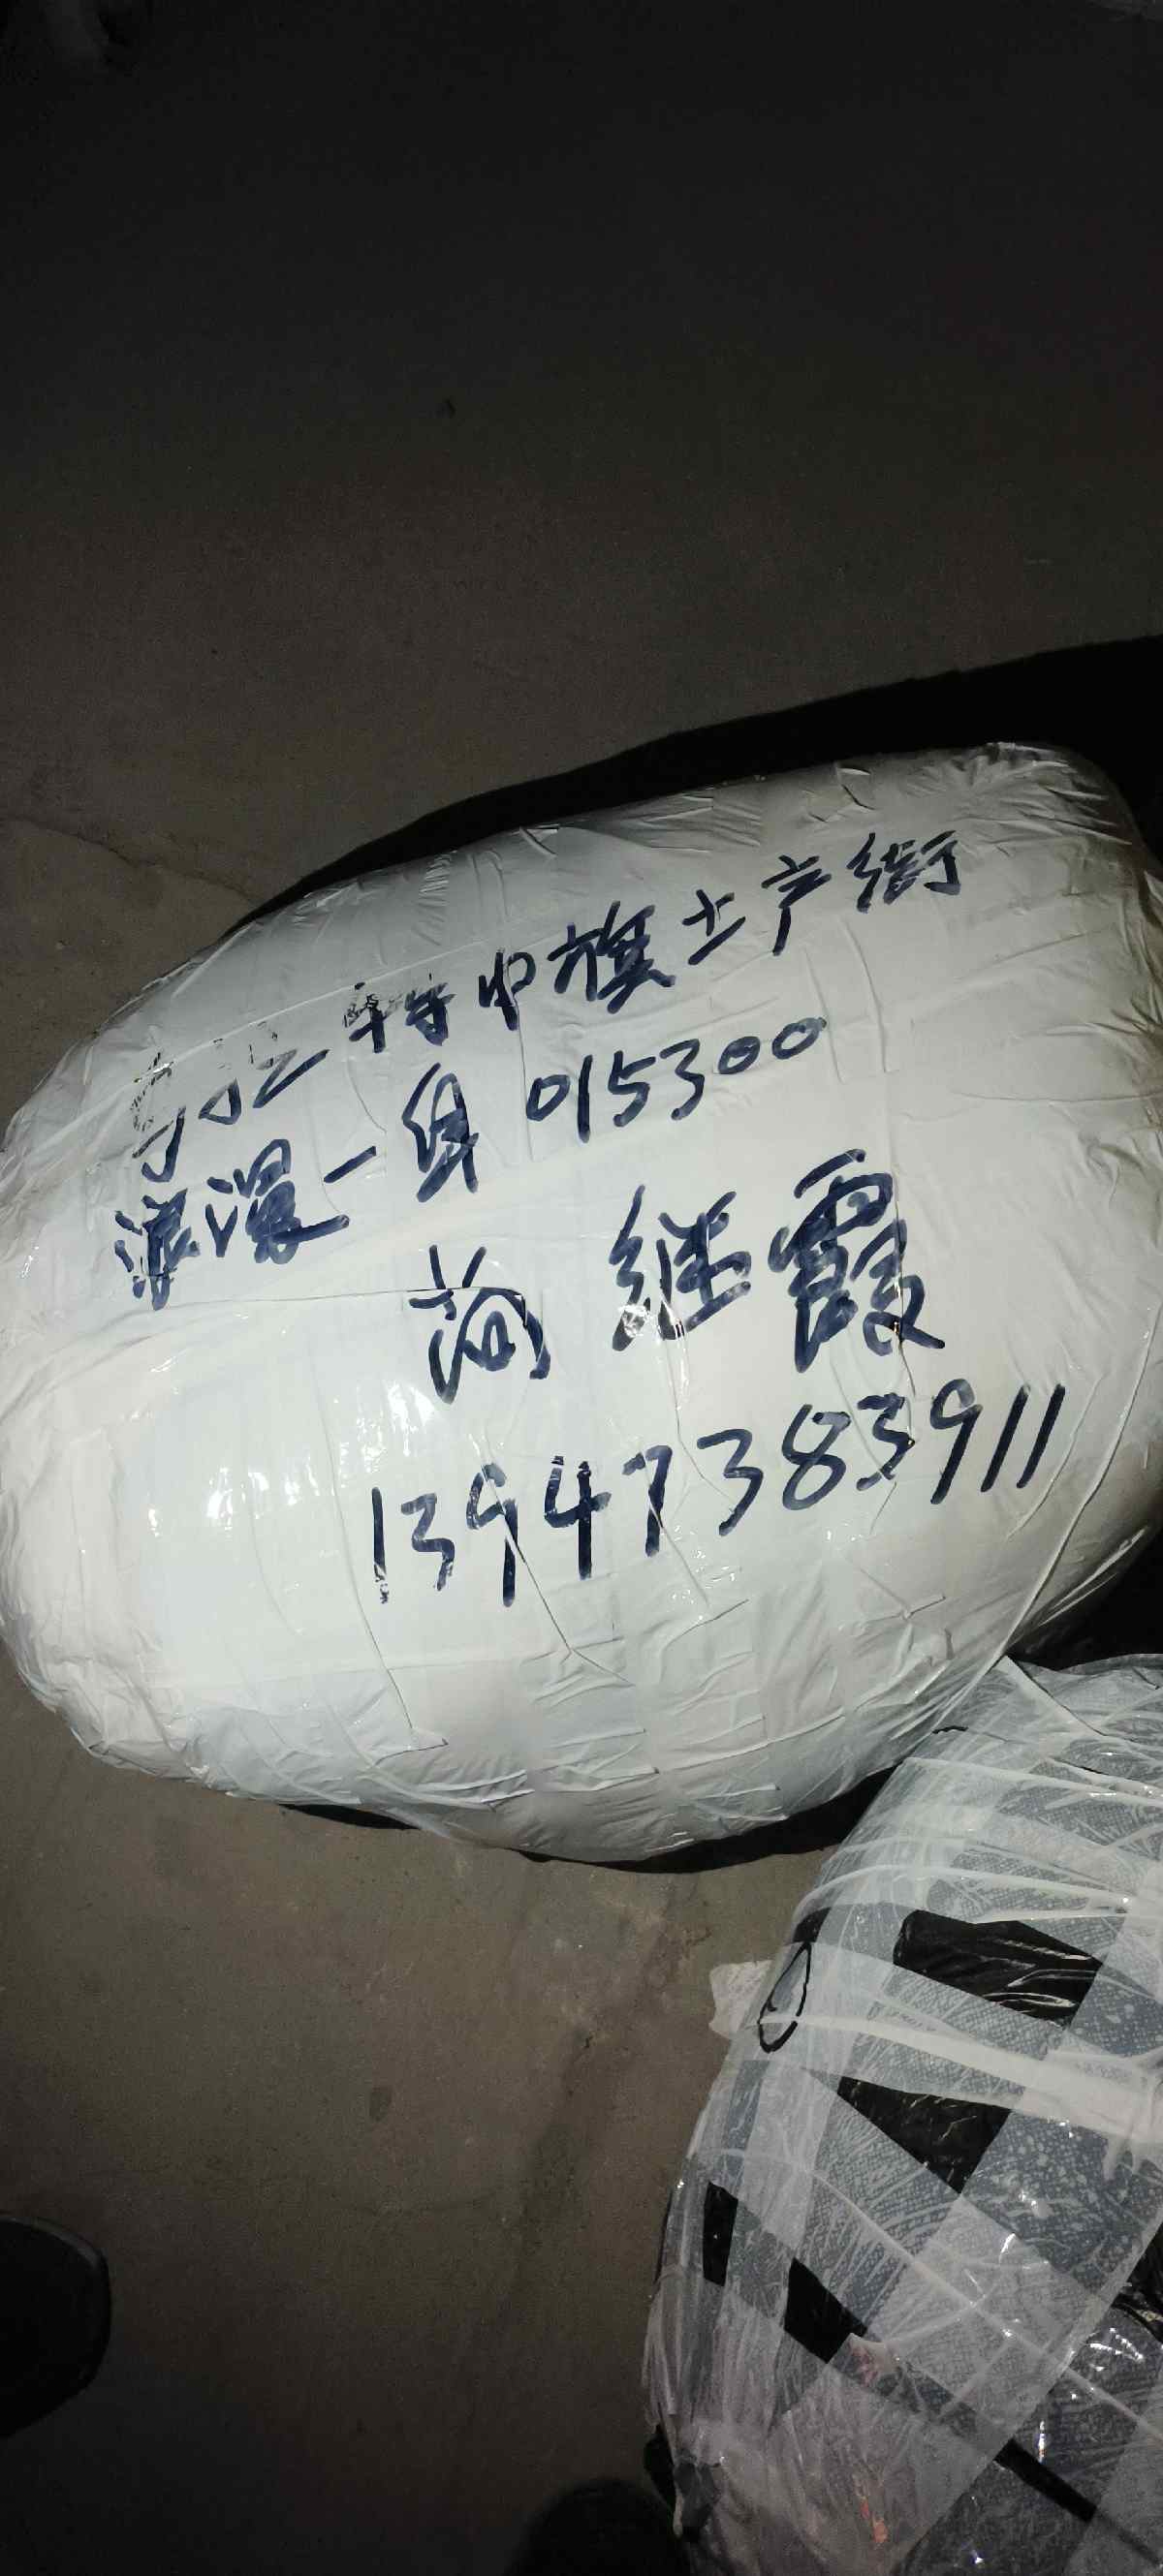 乌拉特中旗土产街
浪漫一身 015300
苟继霞
13947383911